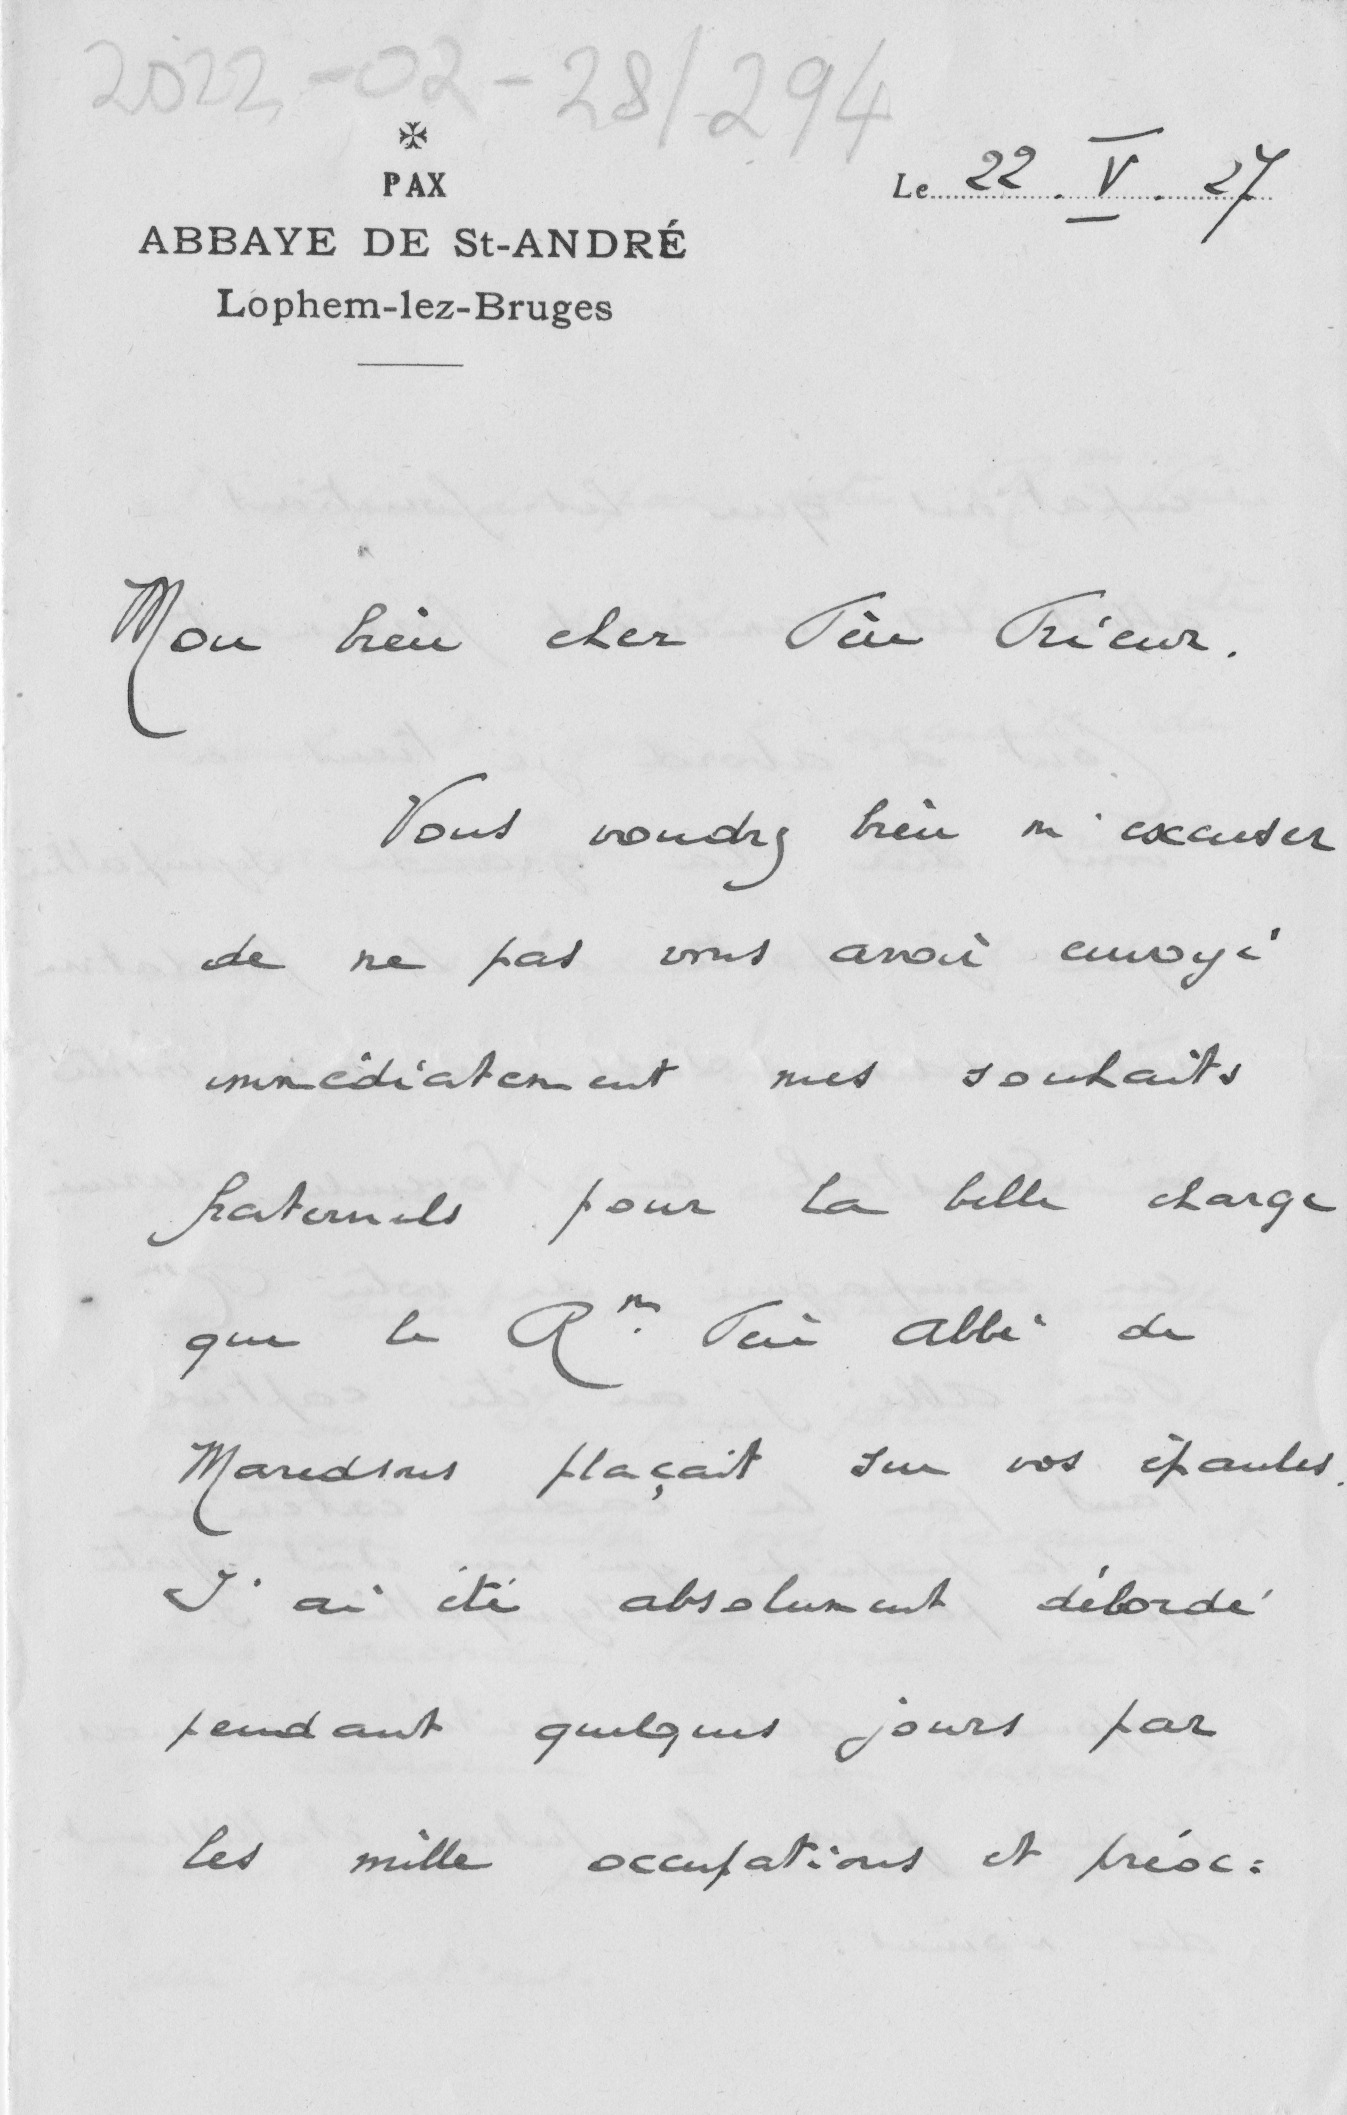 2022-02-28/294
✠
PAX
Le 22 . V . 27
ABBAYE DE St-ANDRÉ
Lophem-lez-Bruges
Mon bien cher Père Prieur.
Vous voudrez bien m'excuser
de ne pas vous avoir envoyé
immédiatement mes souhaits
fraternels pour la belle charge
que le Rm. Père Abbé de
Maredsous plaçait sur vos épaules.
J'ai été absolument débordé
pendant quelques jours par
les mille occupations et préoc=